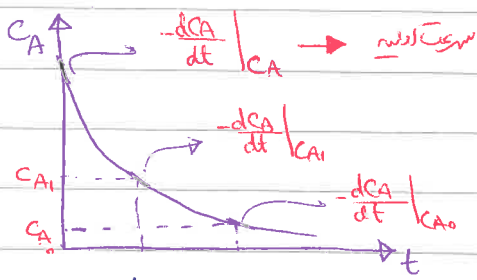 C_A
-dC_A/dt |_{C_A} → سرعت اولیه
-dC_A/dt |_{C_{A1}}
C_{A1}
-dC_A/dt |_{C_{A0}}
C_{A0}
t